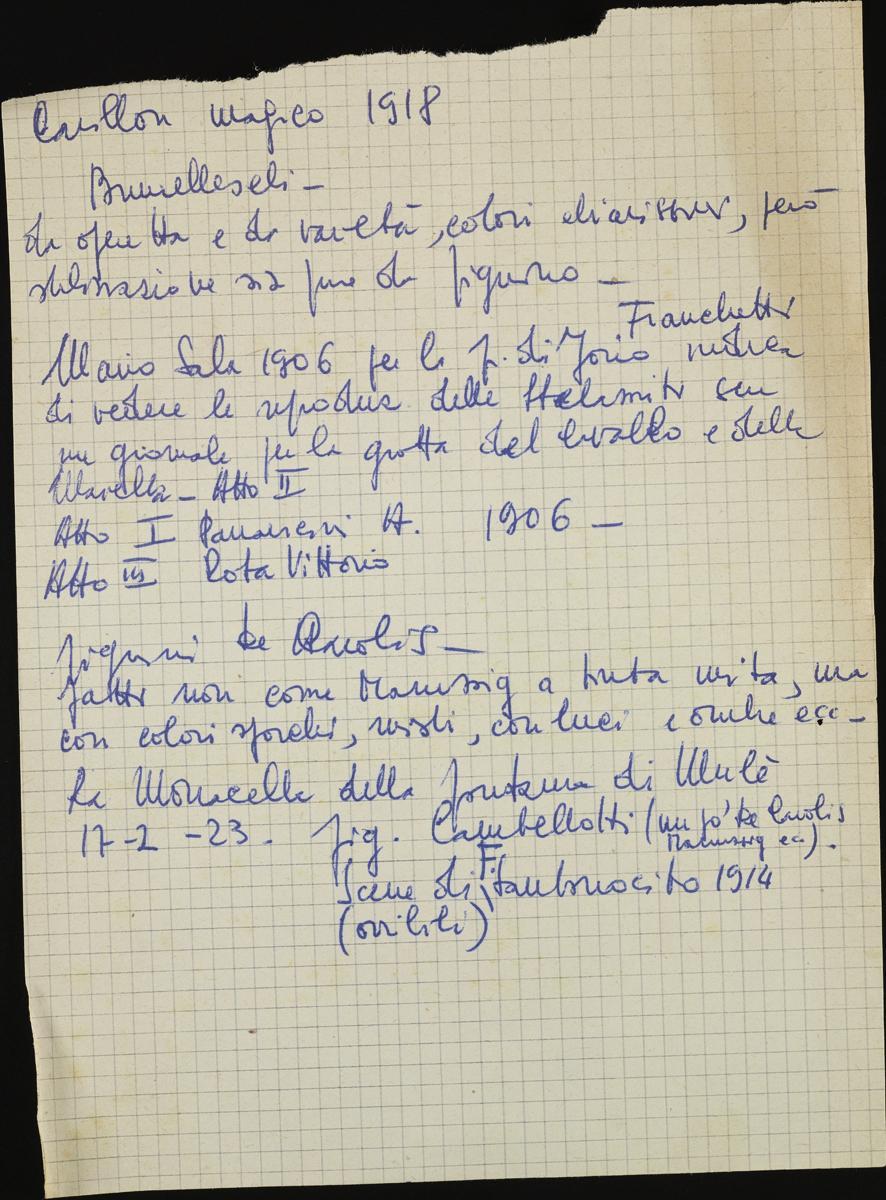 Carillon magico 1918
Brunelleschi -
da operetta e da varietà, colori chiarissimi, però
stilizzazione sia pure da figurino -
Mario Sala 1906 per la f. di Jorio
Franchetti
di vedere le delle stalamiti
un giornale per la grotta del cavallo e delle
Atto II
Atto I A. 1906 -
Atto III Rota Vittorio
figurini De Carolis -
fatti non come Marussig a tinta unita, ma
con colori sporchi, misti, con luci e ombre ecc -
La Monacella della fontana di Mulè
17-2-23. fig. Cambellotti (un po' De Carolis
Marussig ec.).
Scene di F. 1914
(orribili)